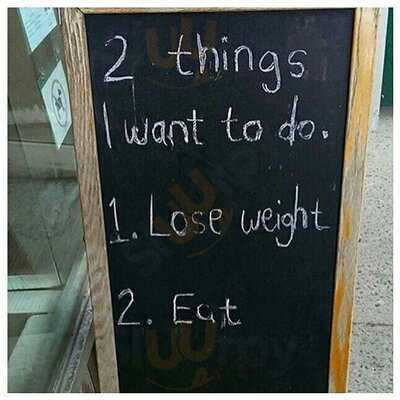 2 things
I want to do.
1. Lose weight
2. Eat